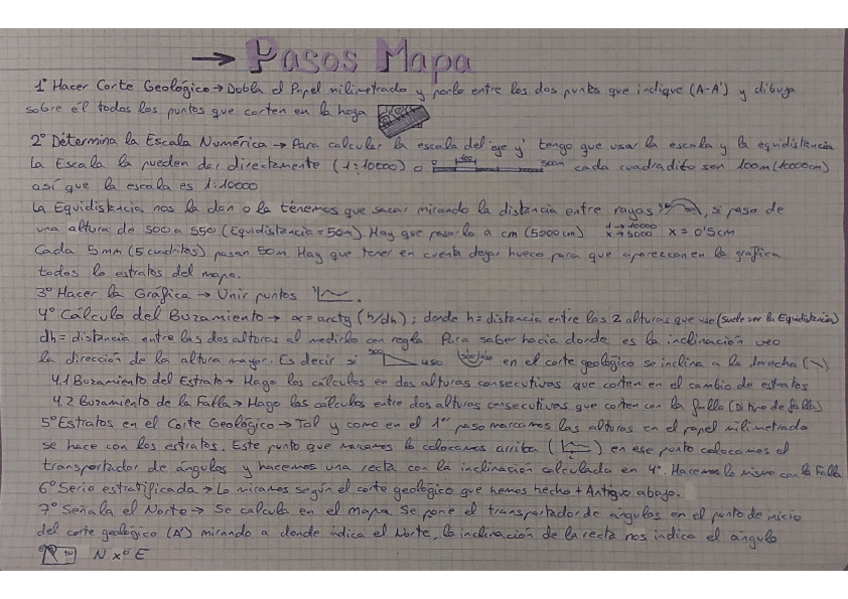 → Pasos Mapa
1º Hacer Corte Geológico → Dobla el Papel milimetrado y ponlo entre los dos puntos que indique (A-A') y dibuja
sobre él todos los puntos que corten en la hoja
2º Determina la Escala Numérica → Para calcular la escala del eje y' tengo que usar la escala y la equidistancia
La Escala la pueden dar directamente (1:10000) o 0 500m cada cuadradito son 100m (10000cm)
así que la escala es 1:10000
La Equidistancia nos la dan o la tenemos que sacar mirando la distancia entre rayas, si pasa de
una altura de 500 a 550 (Equidistancia = 50m). Hay que pasarlo a cm (5000cm) 1 → 10000 x → 5000 x = 0'5cm
Cada 5mm (5 cuaditos) pasan 50m. Hay que tener en cuenta dejar hueco para que aparezcan en la gráfica
todos lo estratos del mapa.
3º Hacer la Gráfica → Unir puntos
4º Cálculo del Buzamiento → α = arctg (h/dh); donde h = distancia entre las 2 alturas que use (suele ser la Equidistancia)
dh = distancia entre las dos alturas al medirlo con regla. Para saber hacia donde es la inclinación veo
la dirección de la altura mayor. Es decir si 500 en el corte geológico se inclina a la derecha (\)
4.1 Buzamiento del Estrato → Hago los cálculos en dos alturas consecutivas que corten en el cambio de estratos
4.2 Buzamiento de la Falla → Hago los cálculos entre dos alturas consecutivas que corten con la falla (Di tipo de falla)
5º Estratos en el Corte Geológico → Tal y como en el 1er paso marcamos las alturas en el papel milimetrado
se hace con los estratos. Este punto que marcamos lo colocamos arriba ( ) en ese punto colocamos el
transportador de ángulos y hacemos una recta con la inclinación calculada en 4º. Hacemos lo mismo con la Falla
6º Serie estratificada → Lo miramos según el corte geológico que hemos hecho + Antiguo abajo.
7º Señala el Norte → Se calcula en el mapa. Se pone el transportador de ángulos en el punto de inicio
del corte geológico (A') mirando a donde indica el Norte, la inclinación de la recta nos indica el angulo
N xº E